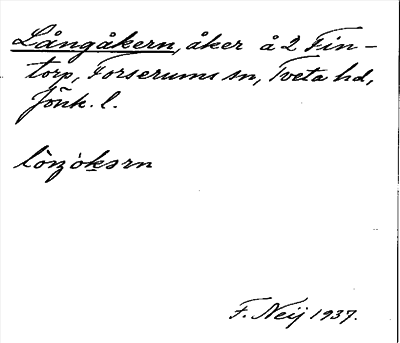 Långåkern, åker å 2 Fin-
torp, Forserums sn, Tveta hd,
Jönk. l.
F. Neij 1937.